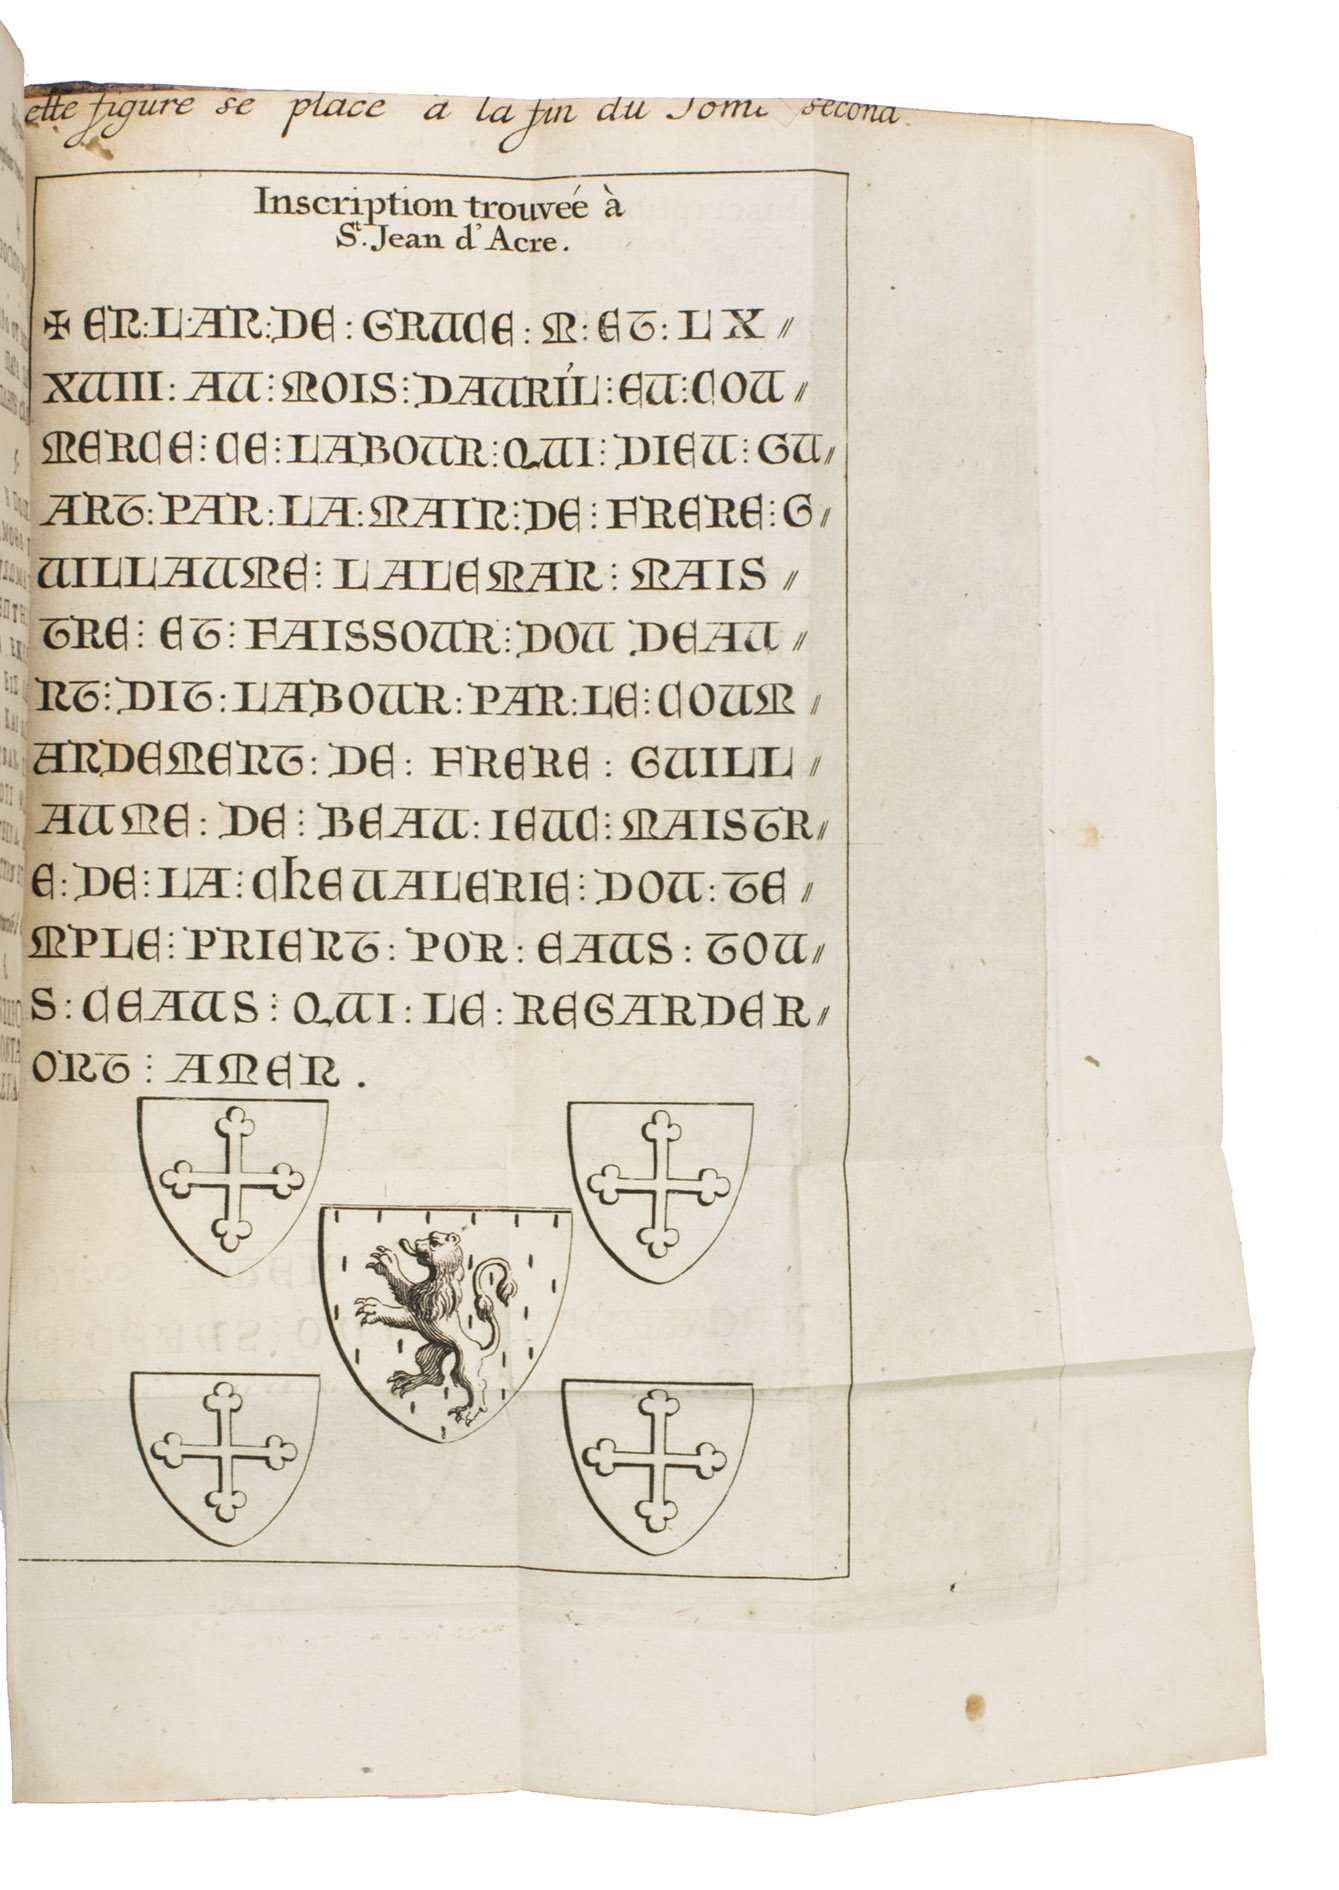 ette figure se place a la fin du Tome second.
Inscription trouveé à
St. Jean d'Acre.
✠ EN:L:AN:DE: GRACE: M: ET: LX //
XUIII: AU: MOIS: DAURIL: EU: COU //
MERCE: CE: LABOUR: QUI: DIEU: GU //
ART: PAR: LA: MAIN: DE: FRERE: G //
UILLAUME: LALEMAN: MAIS //
TRE: ET: FAISSOUR: DOU DEAU //
NT: DIT: LABOUR: PAR: LE: COUM //
ANDEMENT: DE: FRERE: GUILL //
AUME: DE: BEAU: IEUC: MAISTR //
E: DE: LA: ChEUALERIE: DOU: TE //
MPLE: PRIENT: POR: EAUS: TOU //
S: CEAUS: QUI: LE: REGARDER //
ONT: AMEN.